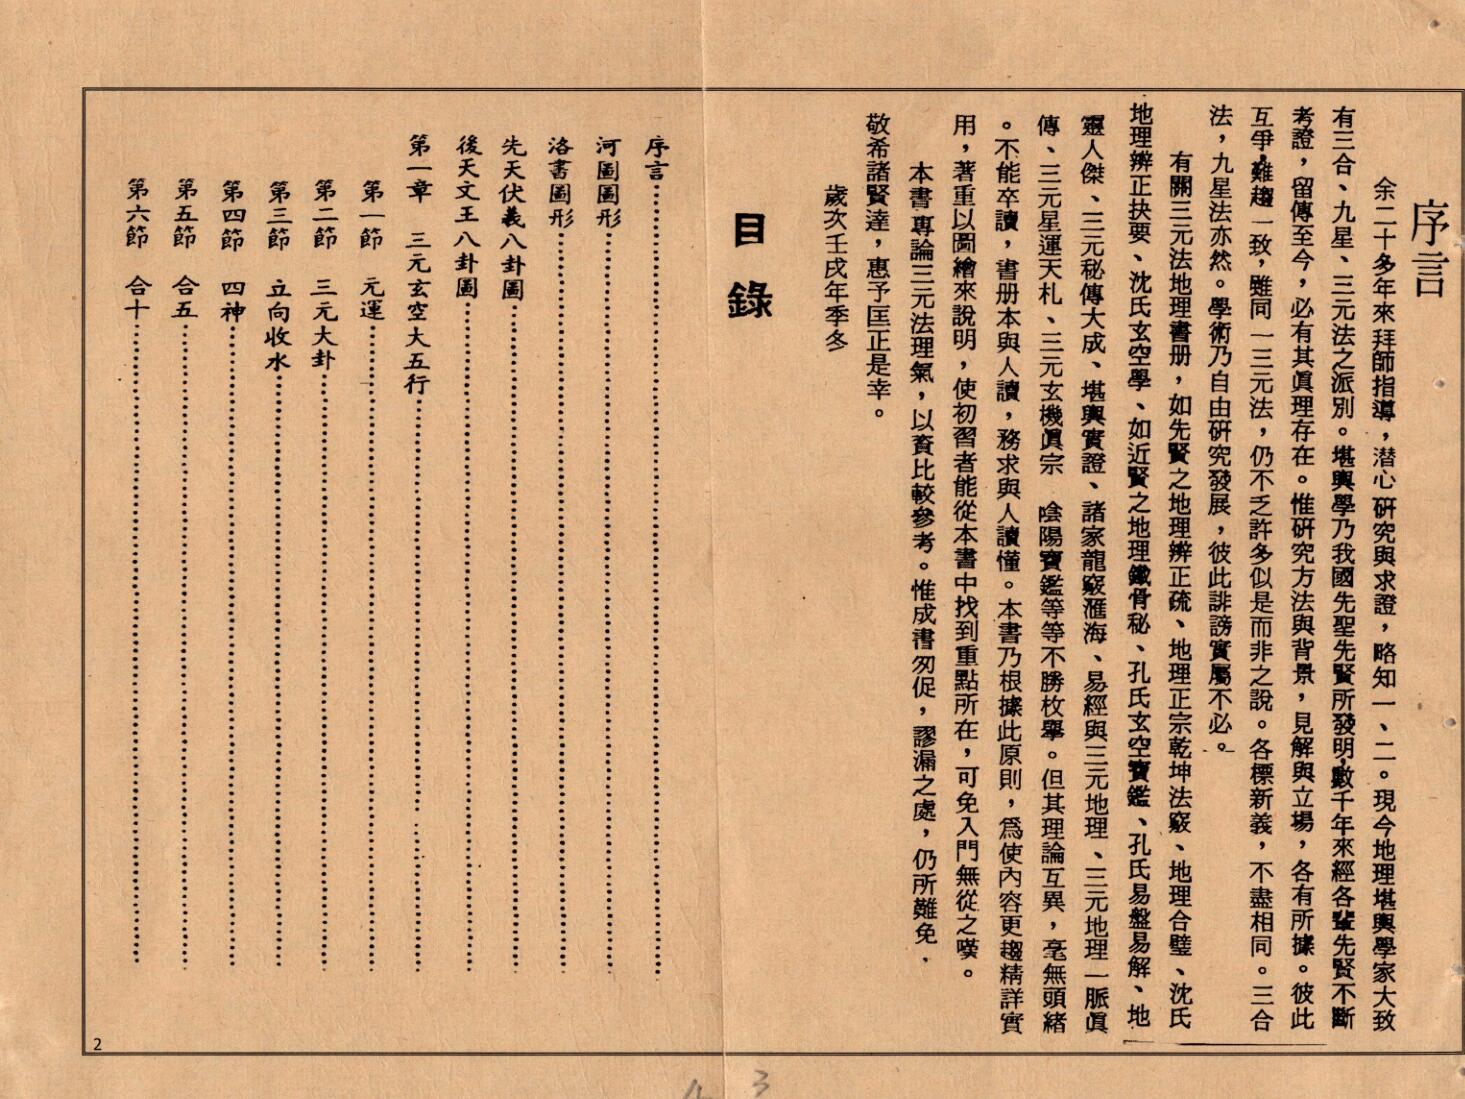 序言
余二十多年來拜師指導，潜心研究與求證，略知一、二。現今地理堪輿學家大致
有三合、九星、三元法之派別。堪輿學乃我國先聖先賢所發明，數千年來經各輩先賢不斷
考證，留傳至今，必有其眞理存在。惟研究方法與背景，見解與立場，各有所據。彼此
互爭，難趨一致，雖同一三元法，仍不乏許多似是而非之說。各標新義，不盡相同。三合
法，九星法亦然。學術乃自由研究發展，彼此誹謗實屬不必。
有關三元法地理書册，如先賢之地理辨正疏、地理正宗乾坤法竅、地理合璧、沈氏
地理辨正抉要、沈氏玄空學、如近賢之地理鐵骨秘、孔氏玄空寶鑑、孔氏易盤易解、地
靈人傑、三元秘傳大成、堪輿實證、諸家龍竅滙海、易經與三元地理、三元地理一脈眞
傳、三元星運天札、三元玄機眞宗 陰陽寶鑑等等不勝枚舉。但其理論互異，毫無頭緒
。不能卒讀，書册本與人讀，務求與人讀懂。本書乃根據此原則，爲使內容更趨精詳實
用，著重以圖繪來說明，使初習者能從本書中找到重點所在，可免入門無從之嘆。
本書專論三元法理氣，以資比較參考。惟成書匆促，謬漏之處，仍所難免．
敬希諸賢達，惠予匡正是幸。
歲次壬戌年季冬
目錄
序言⋯⋯⋯⋯⋯⋯⋯⋯
河圖圖形⋯⋯⋯⋯⋯⋯⋯⋯
洛書圖形⋯⋯⋯⋯⋯⋯⋯⋯
先天伏羲八卦圖⋯⋯⋯⋯⋯⋯⋯⋯
後天文王八卦圖⋯⋯⋯⋯⋯⋯⋯⋯
第一章 三元玄空大五行⋯⋯⋯⋯⋯⋯⋯⋯
第一節 元運⋯⋯⋯⋯⋯⋯⋯⋯
第二節 三元大卦⋯⋯⋯⋯⋯⋯⋯⋯
第三節 立向收水⋯⋯⋯⋯⋯⋯⋯⋯
第四節 四神⋯⋯⋯⋯⋯⋯⋯⋯
第五節 合五⋯⋯⋯⋯⋯⋯⋯⋯
第六節 合十⋯⋯⋯⋯⋯⋯⋯⋯
2
3